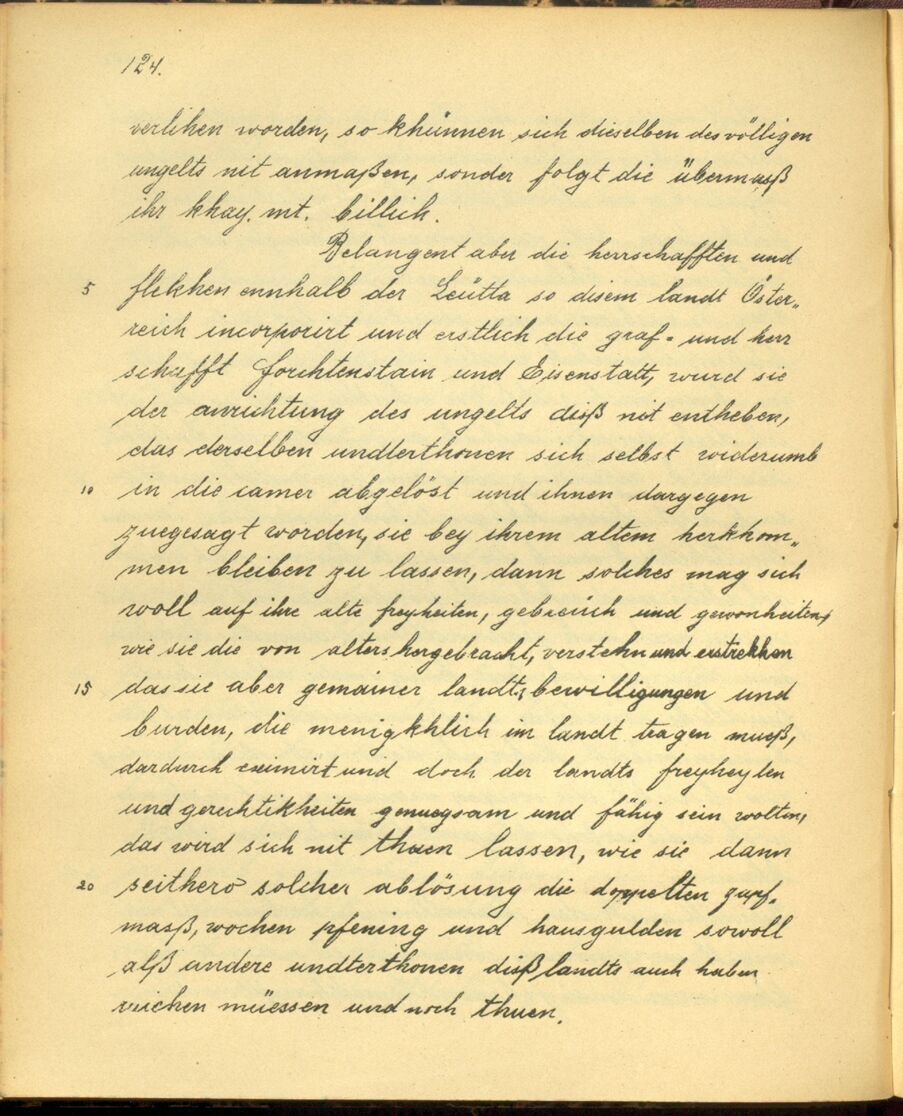 124.
verlihen worden, so khünnen sich dieselben des völligen
ungelts nit anmaßen, sonder folgt die übermaß
ihr khay. mt. billich.
Belangent aber die herrschafften und
5 flekhen ennhalb der Leütta so disem landt Öster„
reich incorporirt und erstlich die graf= und herr
schafft Forchtenstain und Eisenstatt, wurd sie
der anrichtung des ungelts diß nit entheben,
das derselben undterthonen sich selbst widerumb
10 in die camer abgelöst und ihnen dargegen
zuegesagt worden, sie bey ihrem altem herkhom„
men bleiben zu lassen, dann solches mag sich
woll auf ihre alte freyheiten, gebreüch und gewonheiten,
wie sie die von alters hergebracht, verstehn und erstrekhen
15 das sie aber gemainer landts bewilligungen und
burden, die menigkhlich im landt tragen mueß,
dardurch eximirt und doch der landts freyheyten
und gerechtikheiten genuegsam und fähig sein wolten,
das wird sich nit thuen lassen, wie sie dann
20 seithero solcher ablösung die doppelten zapf=
masß, wochen pfening und hausgulden sowoll
alß andere undterthonen diß landts auch haben
reichen müessen und noch thuen.